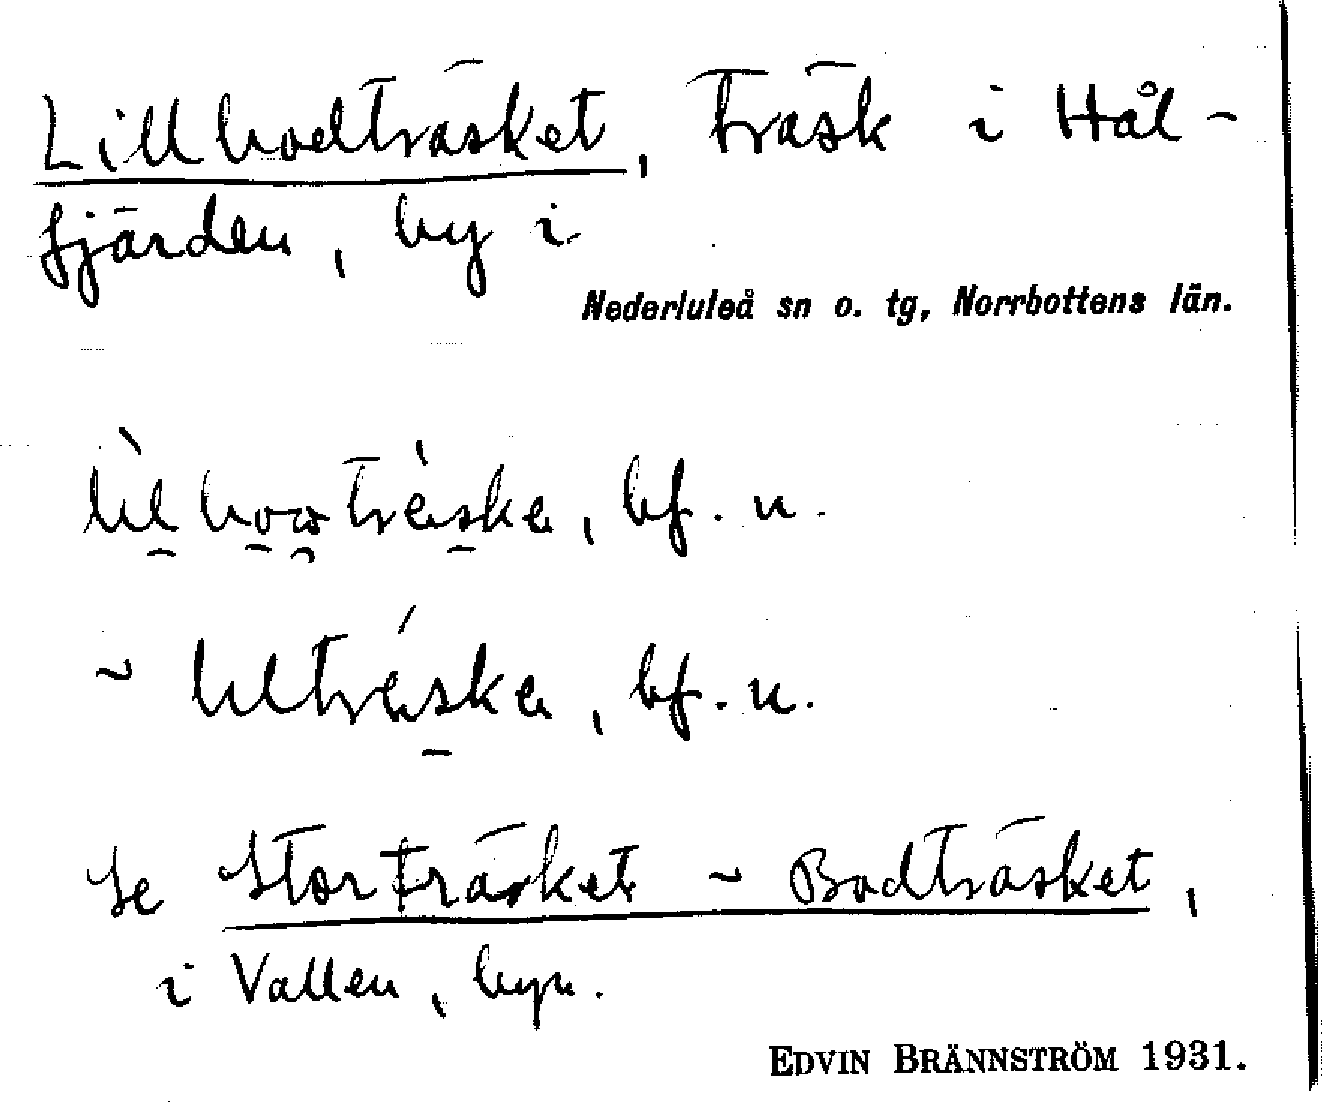 Lillbodträsket, träsk i Hål-
fjärden, by i
Nederluleå sn o. tg, Norrbottens län.
bf. n.
~ bf. n.
se Storträsket ~ Bodträsket,
i Vallen, byn.
EDVIN BRÄNNSTRÖM 1931.